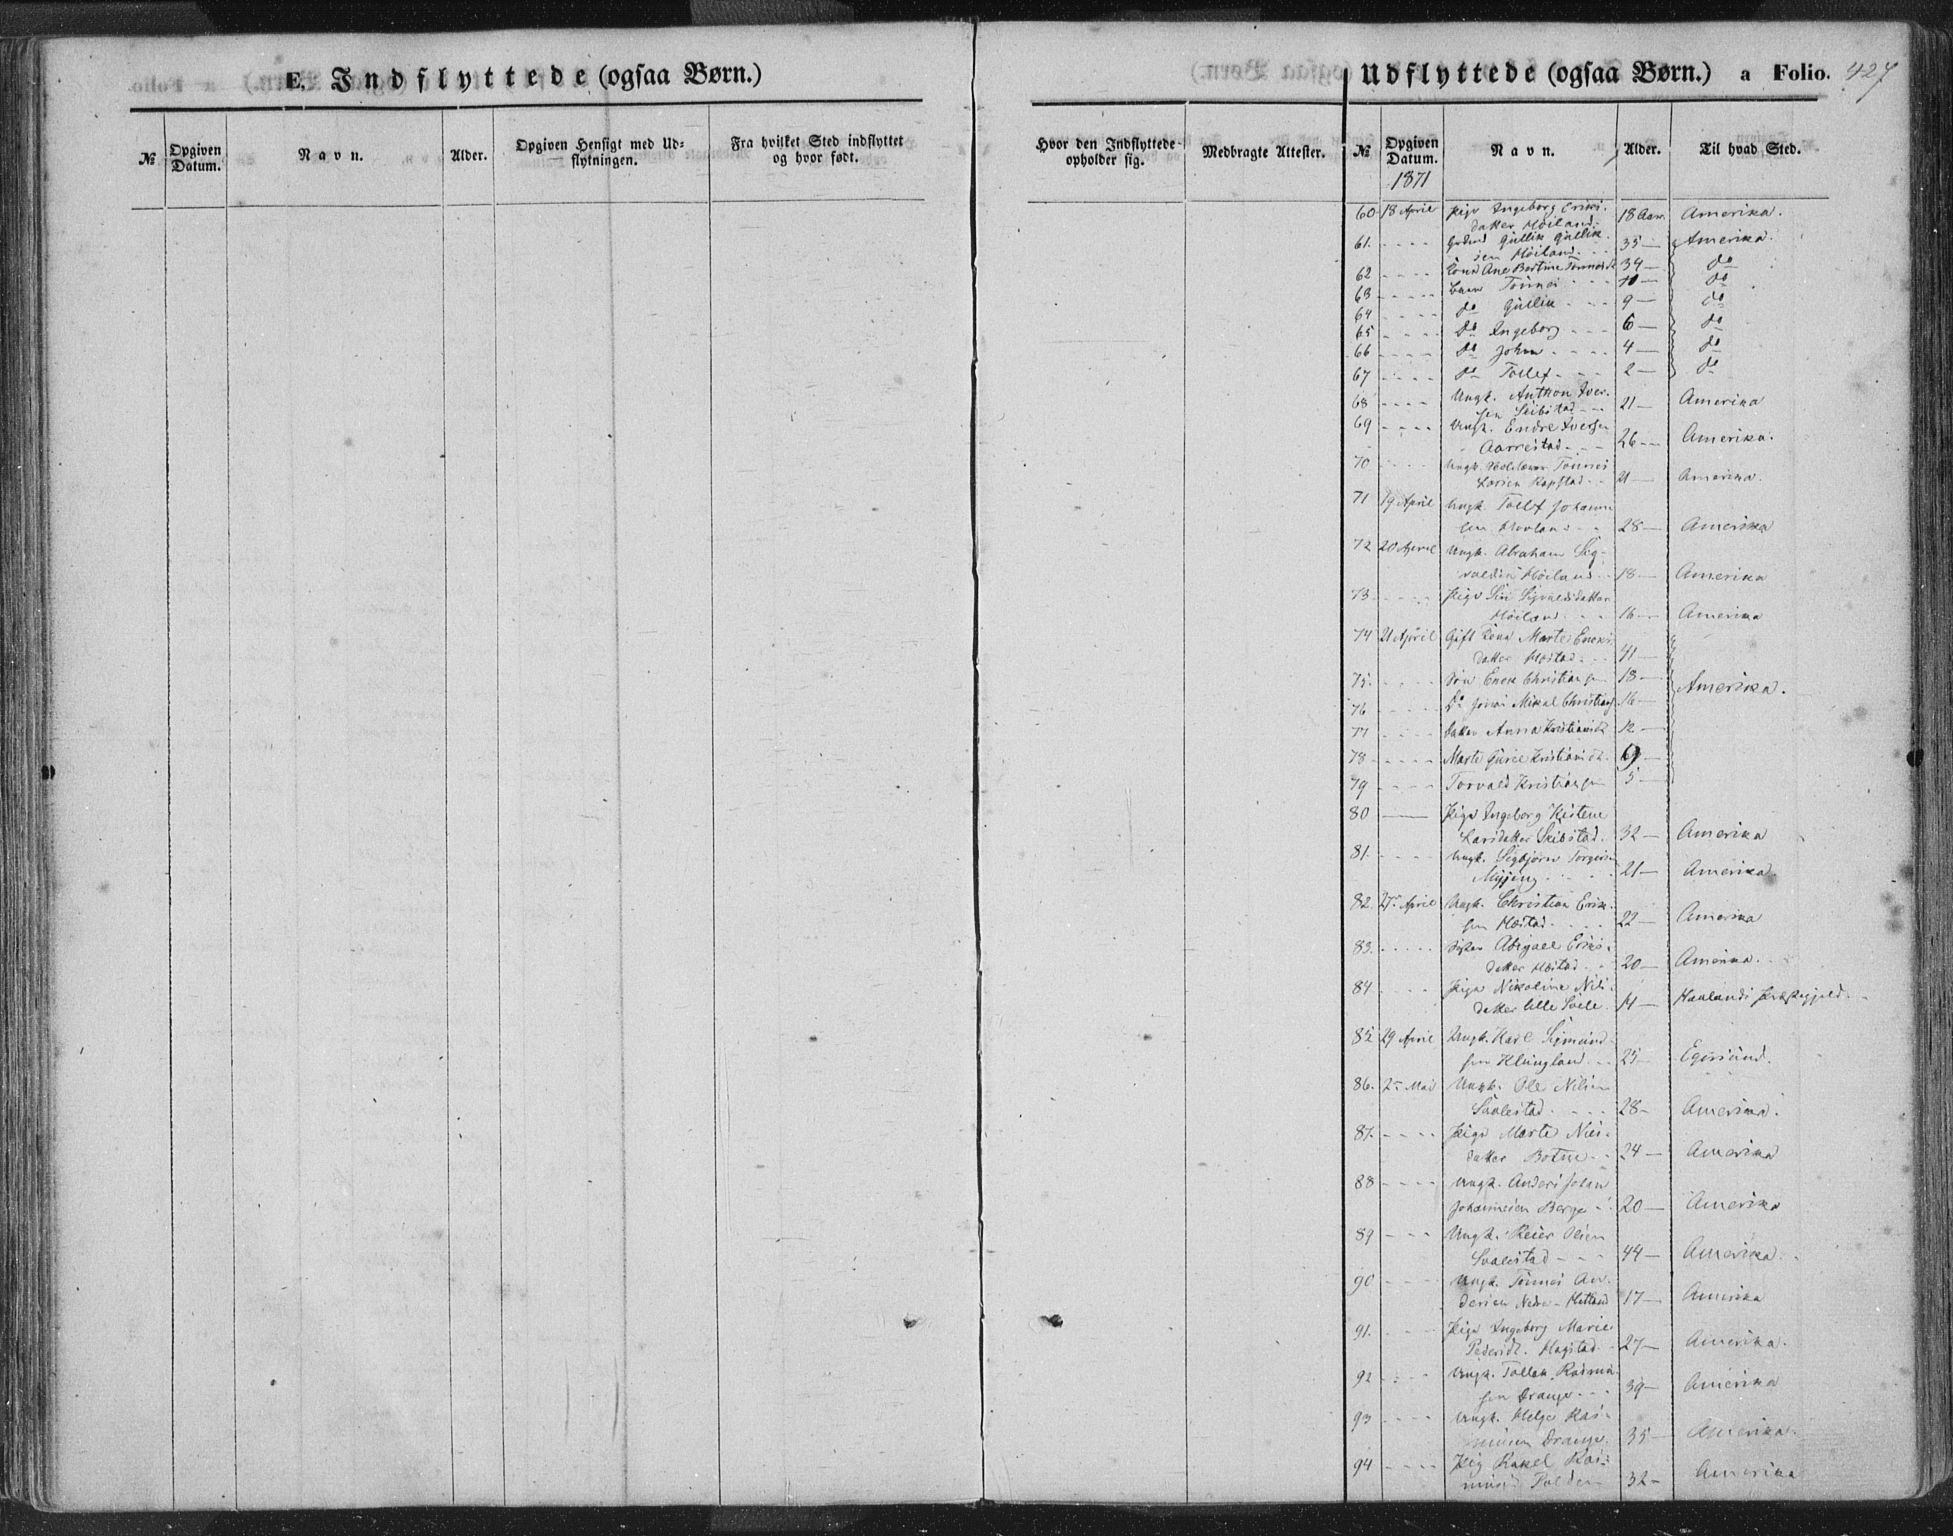 E. Indflyttede (ogsaa Børn.)
№
Opgiven Datum.
Navn.
Alder.
Opgiven Hensigt med Udflytningen.
Fra hvilket Sted indflyttet og hvor født.
Udflyttede (ogsaa Børn.) a Folio. 427
Hvor den Indflyttede opholder sig.
Medbragte Attester.
№
Opgiven Datum.
1871
Navn.
Alder.
Til hvad Sted.
60 18 April Pige Ingeborg Eriks-
datter Höiland 18 Aar. Amerika.
61. Gullik Gullik-
sen Höiland 35 Amerika.
62 Kona Ane Bertine Tönnesdt 34 do
63 Barn Tönnes 10 do
64 do Gullik 9 do
65 do Ingeborg 6 do
66 do John 4 do
67 do Tollef 2 do
68 Ungk. Anthon Iver-
sen Skibstad 21 Amerika
69 Ungk. Endre Iversen
Aarrestad 26 Amerika.
70 Ungk. Tönnes
Larsen Rapstad 21 Amerika.
71 19 April Ungk. Tollef Johann
sen Hovland 28 Amerika
72 20 April Ungk. Abraham Sig-
valdsen Höiland 18 Amerika
73 Pige Siri Sigvaldsdatter
Höiland 16 Amerika
74 21 April Gift Kona Marte Enoks
datter Hæstad 41
75. Sön Enok Christiansen 18 Amerika.
76 do Jonas Mikal Christians 16
77 Datter Anna Kristiansdt 12
78 Marte Gurie Kristiansdt. 9
79 Torvald Kristiansen 5
80 Pige Ingeborg Kistene
Larsdatter Skibstad. 32 Amerika
81. Ungk. Sigbjörn Torgersen
Myjeng 21 Amerika.
82. 27 April Ungk. Christian Erik-
sen Hæstad 22 Amerika
83. Söster Abigael Eriks-
datter Hæstad 20 Amerika.
84. Pige Nikoline Nils-
datter lille Svele 14 Haalands Præstegjeld
85 29 April Ungk. Karl Sigmund-
sen Klungland 25 Egersund.
86. 2 Mai Ungk. Ole Nilsen
Svalestad 28 Amerika.
87. Pige Marte Niels-
datter Botne 24 Amerika
88 Ungk. Anders Johan
Johannesen Berge 20 Amerika
89 Ungk. Reier Olsen
Svalestad 44 Amerika.
90 Ungk. Tönnes An-
dersen Nedre-Hetland 17 Amerika
91. Pige Ingeborg Marie
Pedersdt. Hagstad 27 Amerika.
92 Ungk. Tollak Rasmu-
sen Drange 39 Amerika
93 Ungk. Helge Ras-
musen Drange 35 Amerika.
94 Pig Rakel Ras-
32 Amerika